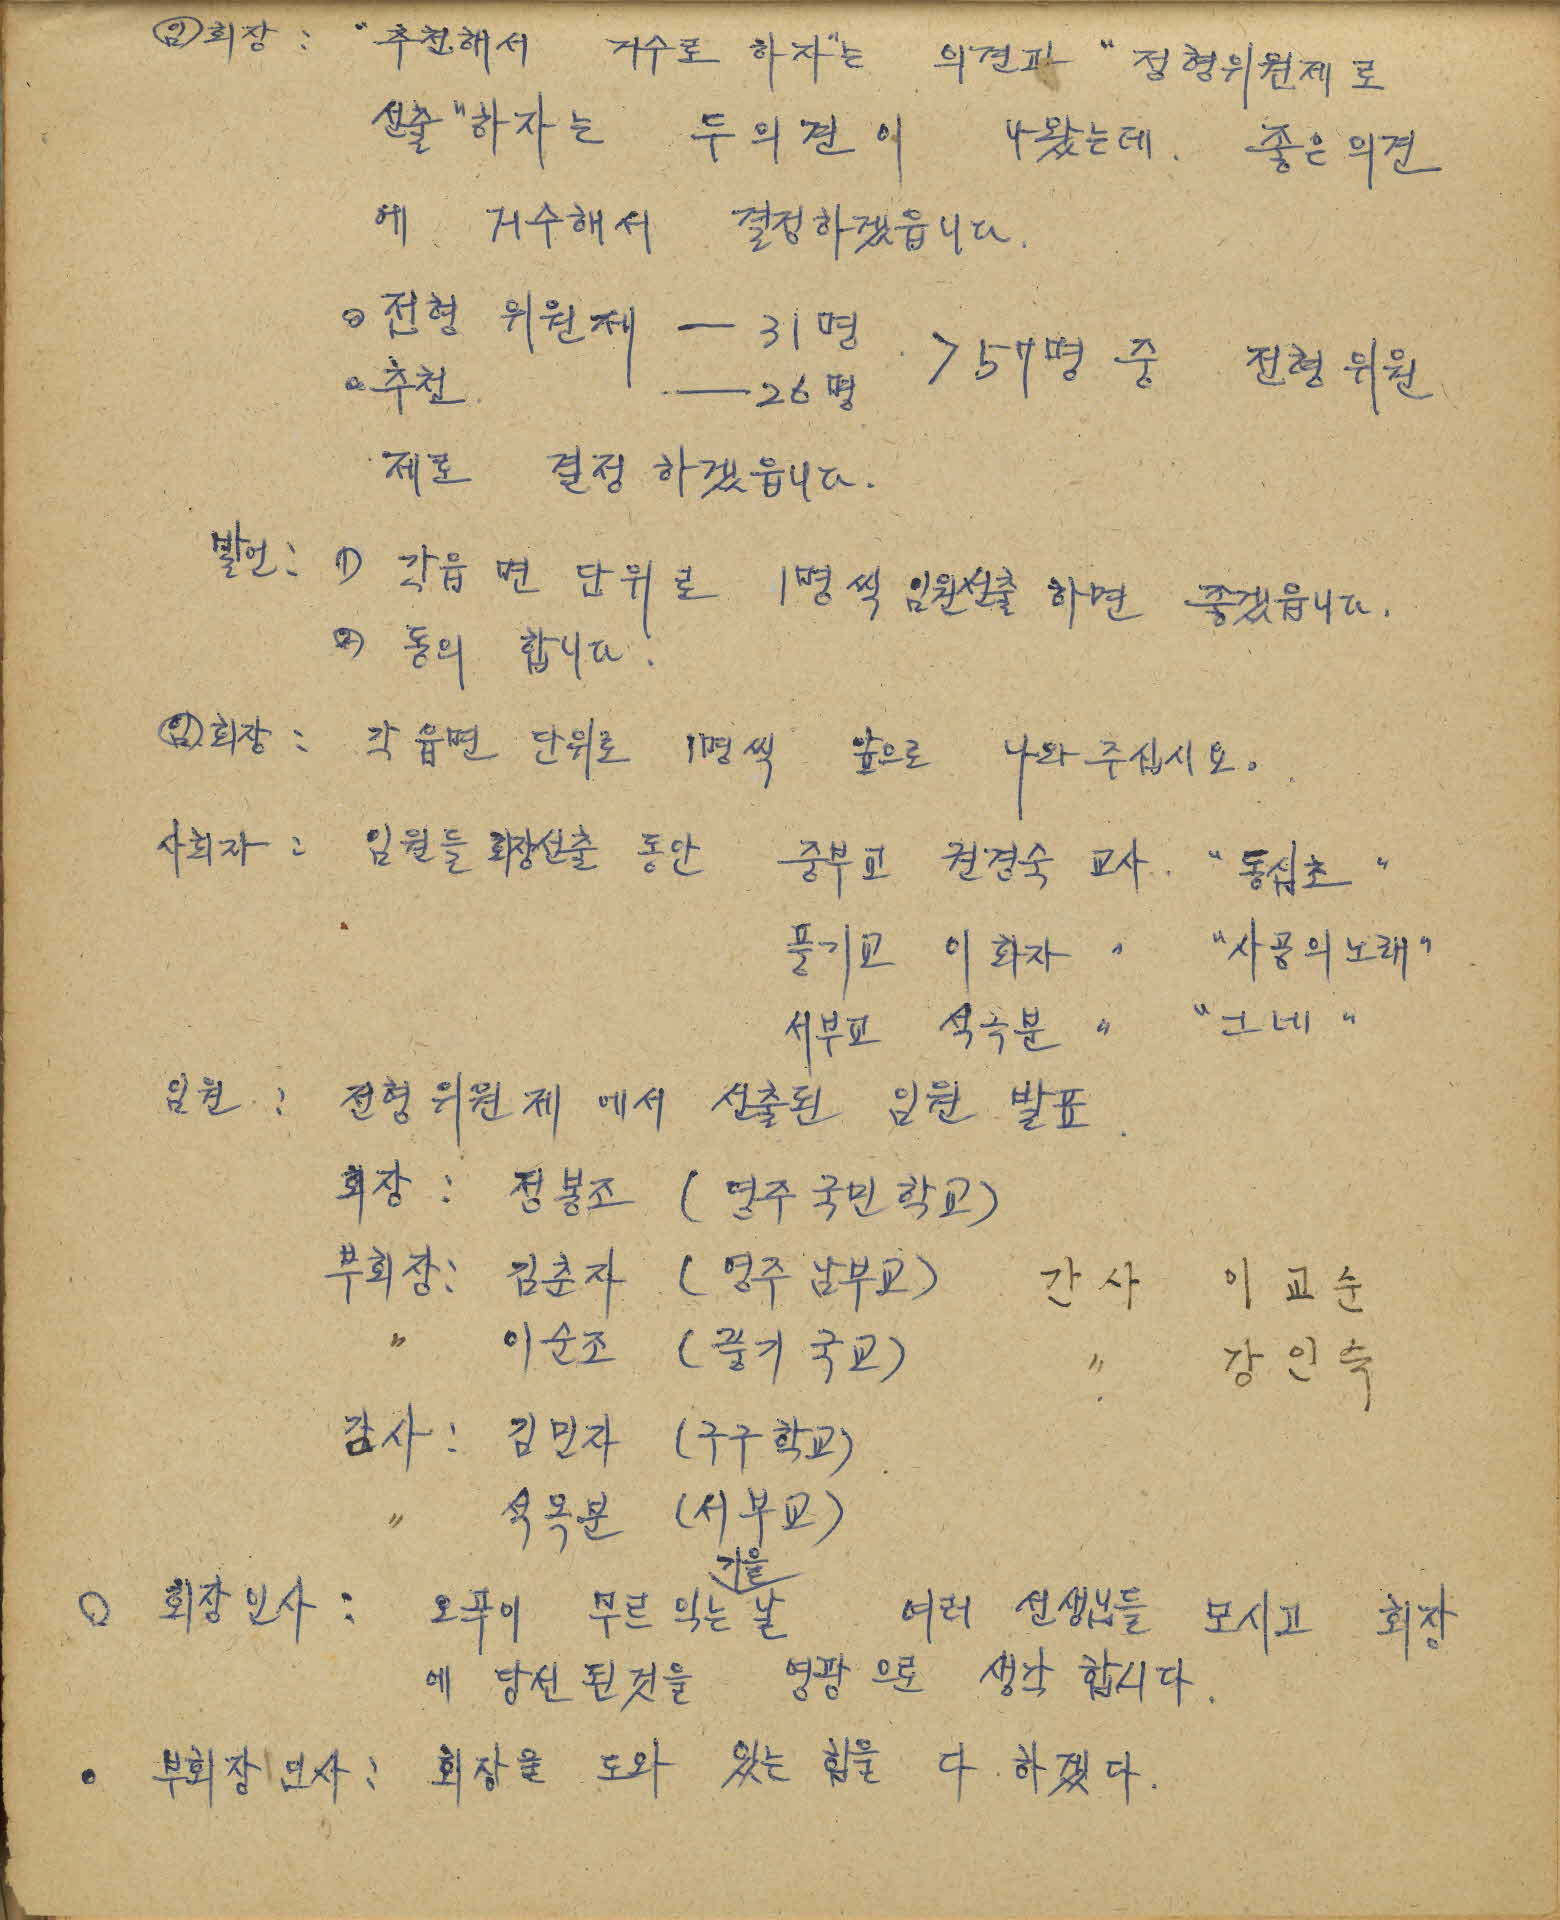 임 회장 : "추천해서 거수로 하자"는 의견과 "정형위원제로
선출"하자는 두의견이 나왔는데. 좋은의견
에 거수해서 결정하겠읍니다.
○ 전형 위원제 — 31명
○ 추천. — 26명 > 57명 중 전형위원
제로 결정 하겠읍니다.
발언 : 1) 각읍면 단위로 1명씩 임원선출 하면 좋겠읍니다.
2) 동의 합니다.
임 회장 : 각 읍면 단위로 1명씩 앞으로 나와 주십시요.
사회자 : 임원들 회장선출 동안 중부교 권경숙 교사. "동심초"
풍기교 이화자 〃 "사공의노래"
서부교 석목분 〃 "그네"
임원 : 전형위원제에서 선출된 임원 발표.
회장 : 정봉조 (영주국민학교)
부회장 : 김춘자 (영주남부교) 간사 이교순
〃 이순조 (풍기국교) 〃 강인숙
감사 : 김민자 (구구학교)
〃 석목분 (서부교)
○ 회장인사 : 오곡이 무르익는 가을 날 여러 선생님들 모시고 회장
에 당선된것을 영광으로 생각합니다.
• 부회장인사 : 회장을 도와 있는힘을 다 하겠다.